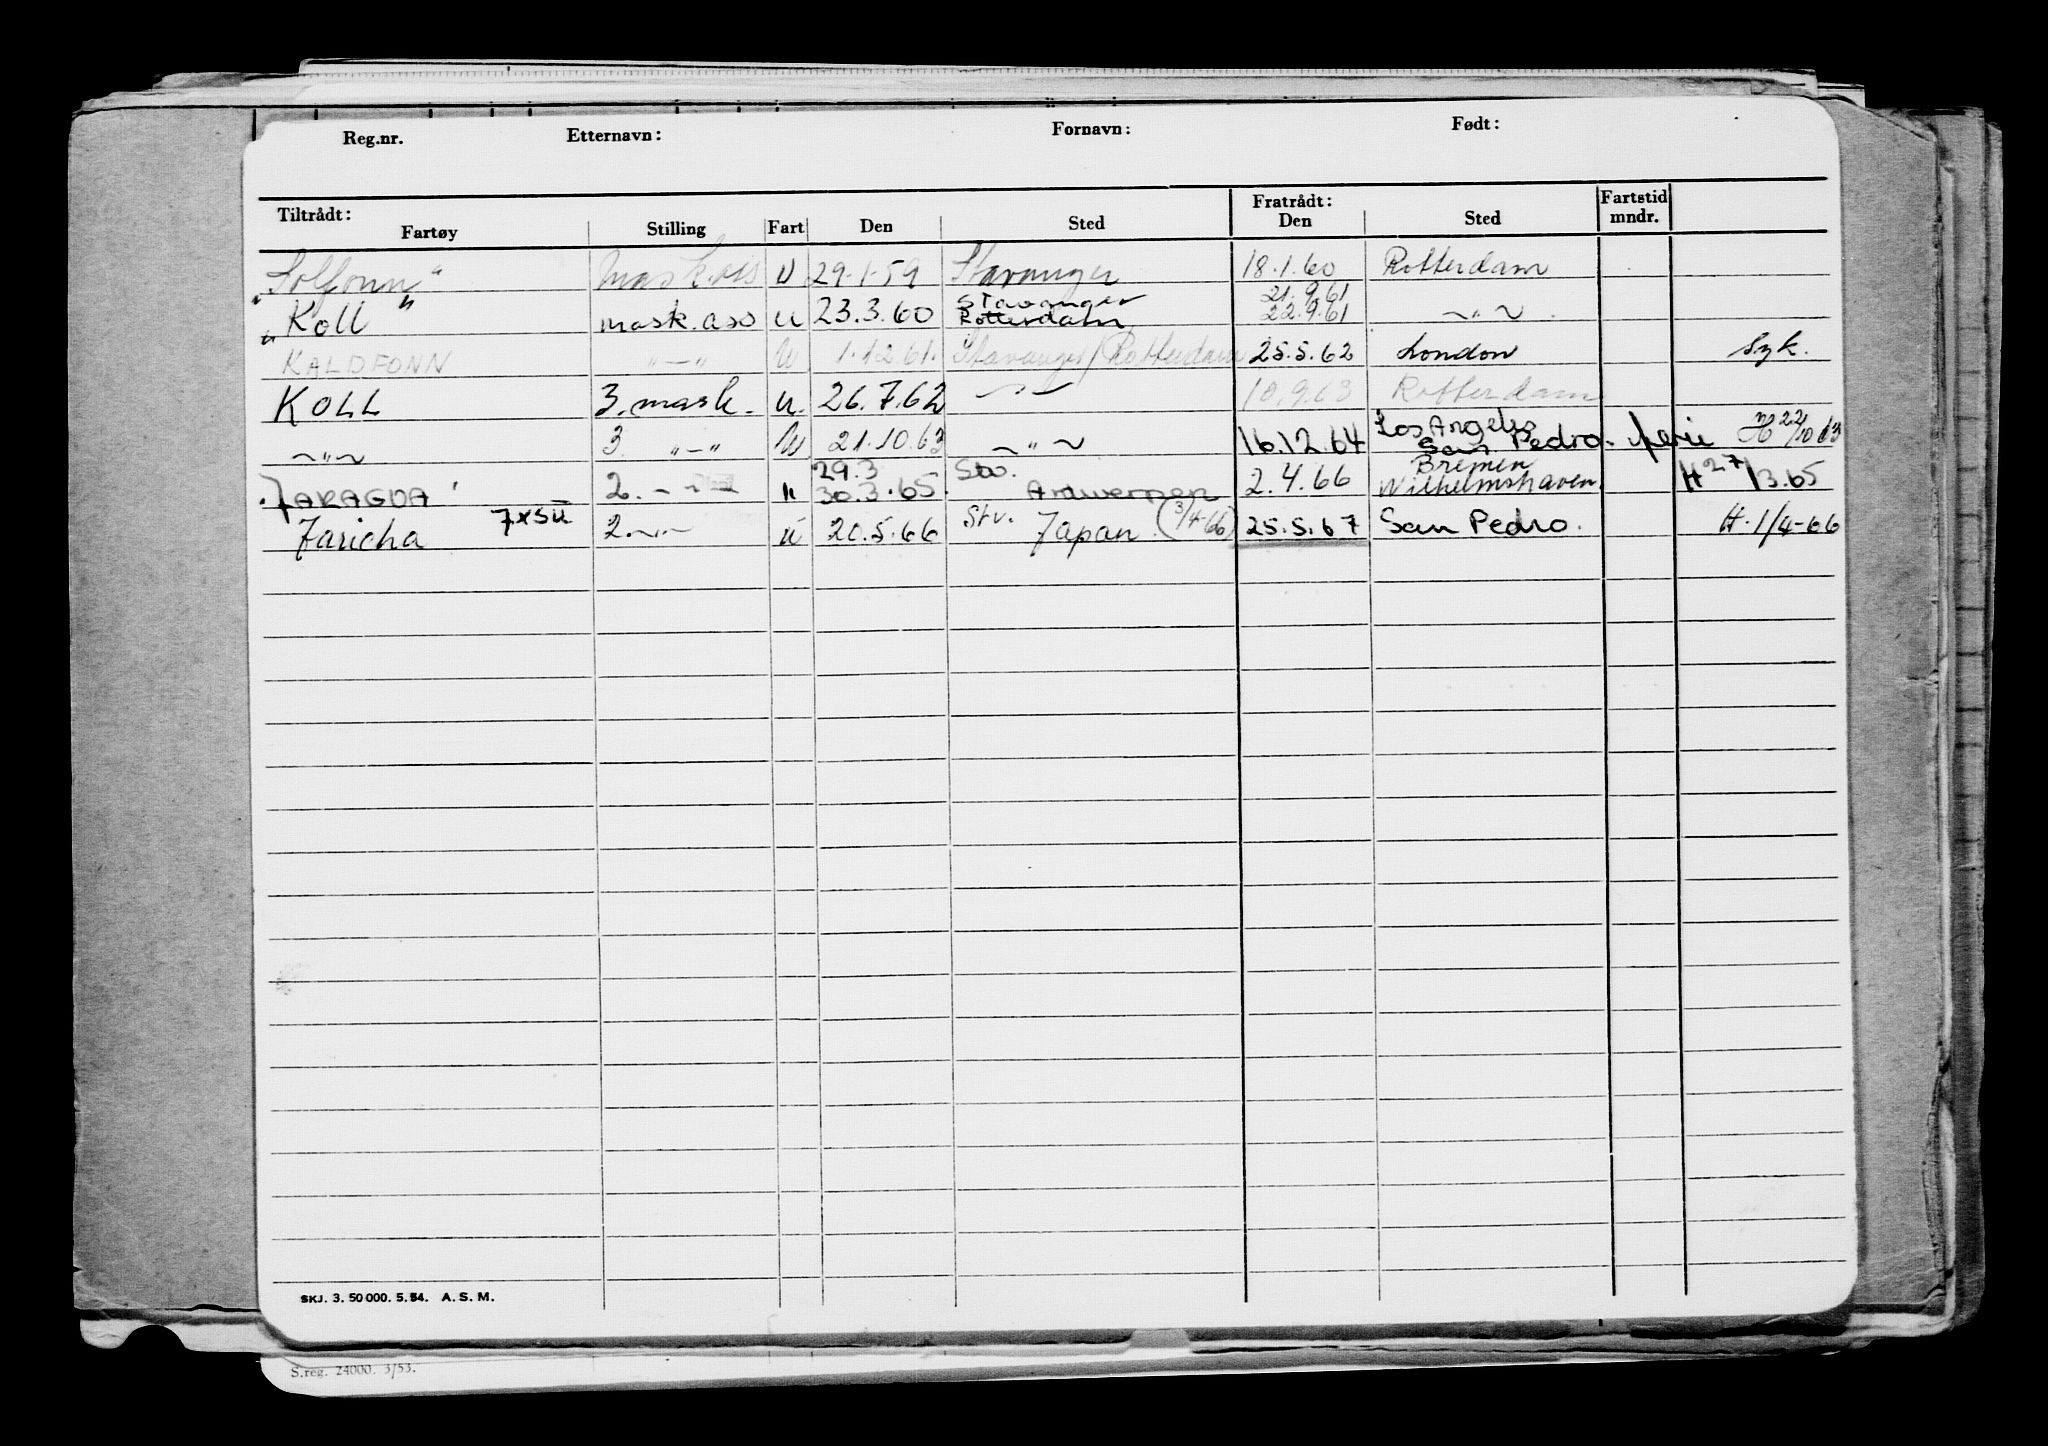 Reg.nr. Etternavn: Fornavn: Født:
Tiltrådt: Fratrådt: Fartstid
Fartøy Stilling Fart Den Sted Den Sted mndr.
"Solfonn" Mask.ass U 29-1-59 Stavanger 18.1.60 Rotterdam
Stavanger 21.9.61
"Koll" mask.ass u 23.3.60 Rotterdam 22.9.61 ~"~
KALDFONN "—" U 1.12.61. Stavanger/Rotterdam 25.5.62 London Syk.
KOLL 3.mask. u. 26.7.62 —"— 10.9.63 Rotterdam
Los Angeles
~"~ 3. "—" U 21.10.63 ~"~ 16.12.64 San Pedro. ferie H 22/10 63
29.3 Stv. Bremen
TARAGDA 2. —"— " 30.3.65. Antwerpen 2.4.66 Wilhelmshaven. H 27/3.65
Taricha 7xSU 2.—"— u 20.5.66 Stv. Japan (3/4-66) 25.5.67 San Pedro. H.1/4-66
SKJ. 3. 50 000. 5. 54. A. S. M.
S.reg. 24000. 3/53.